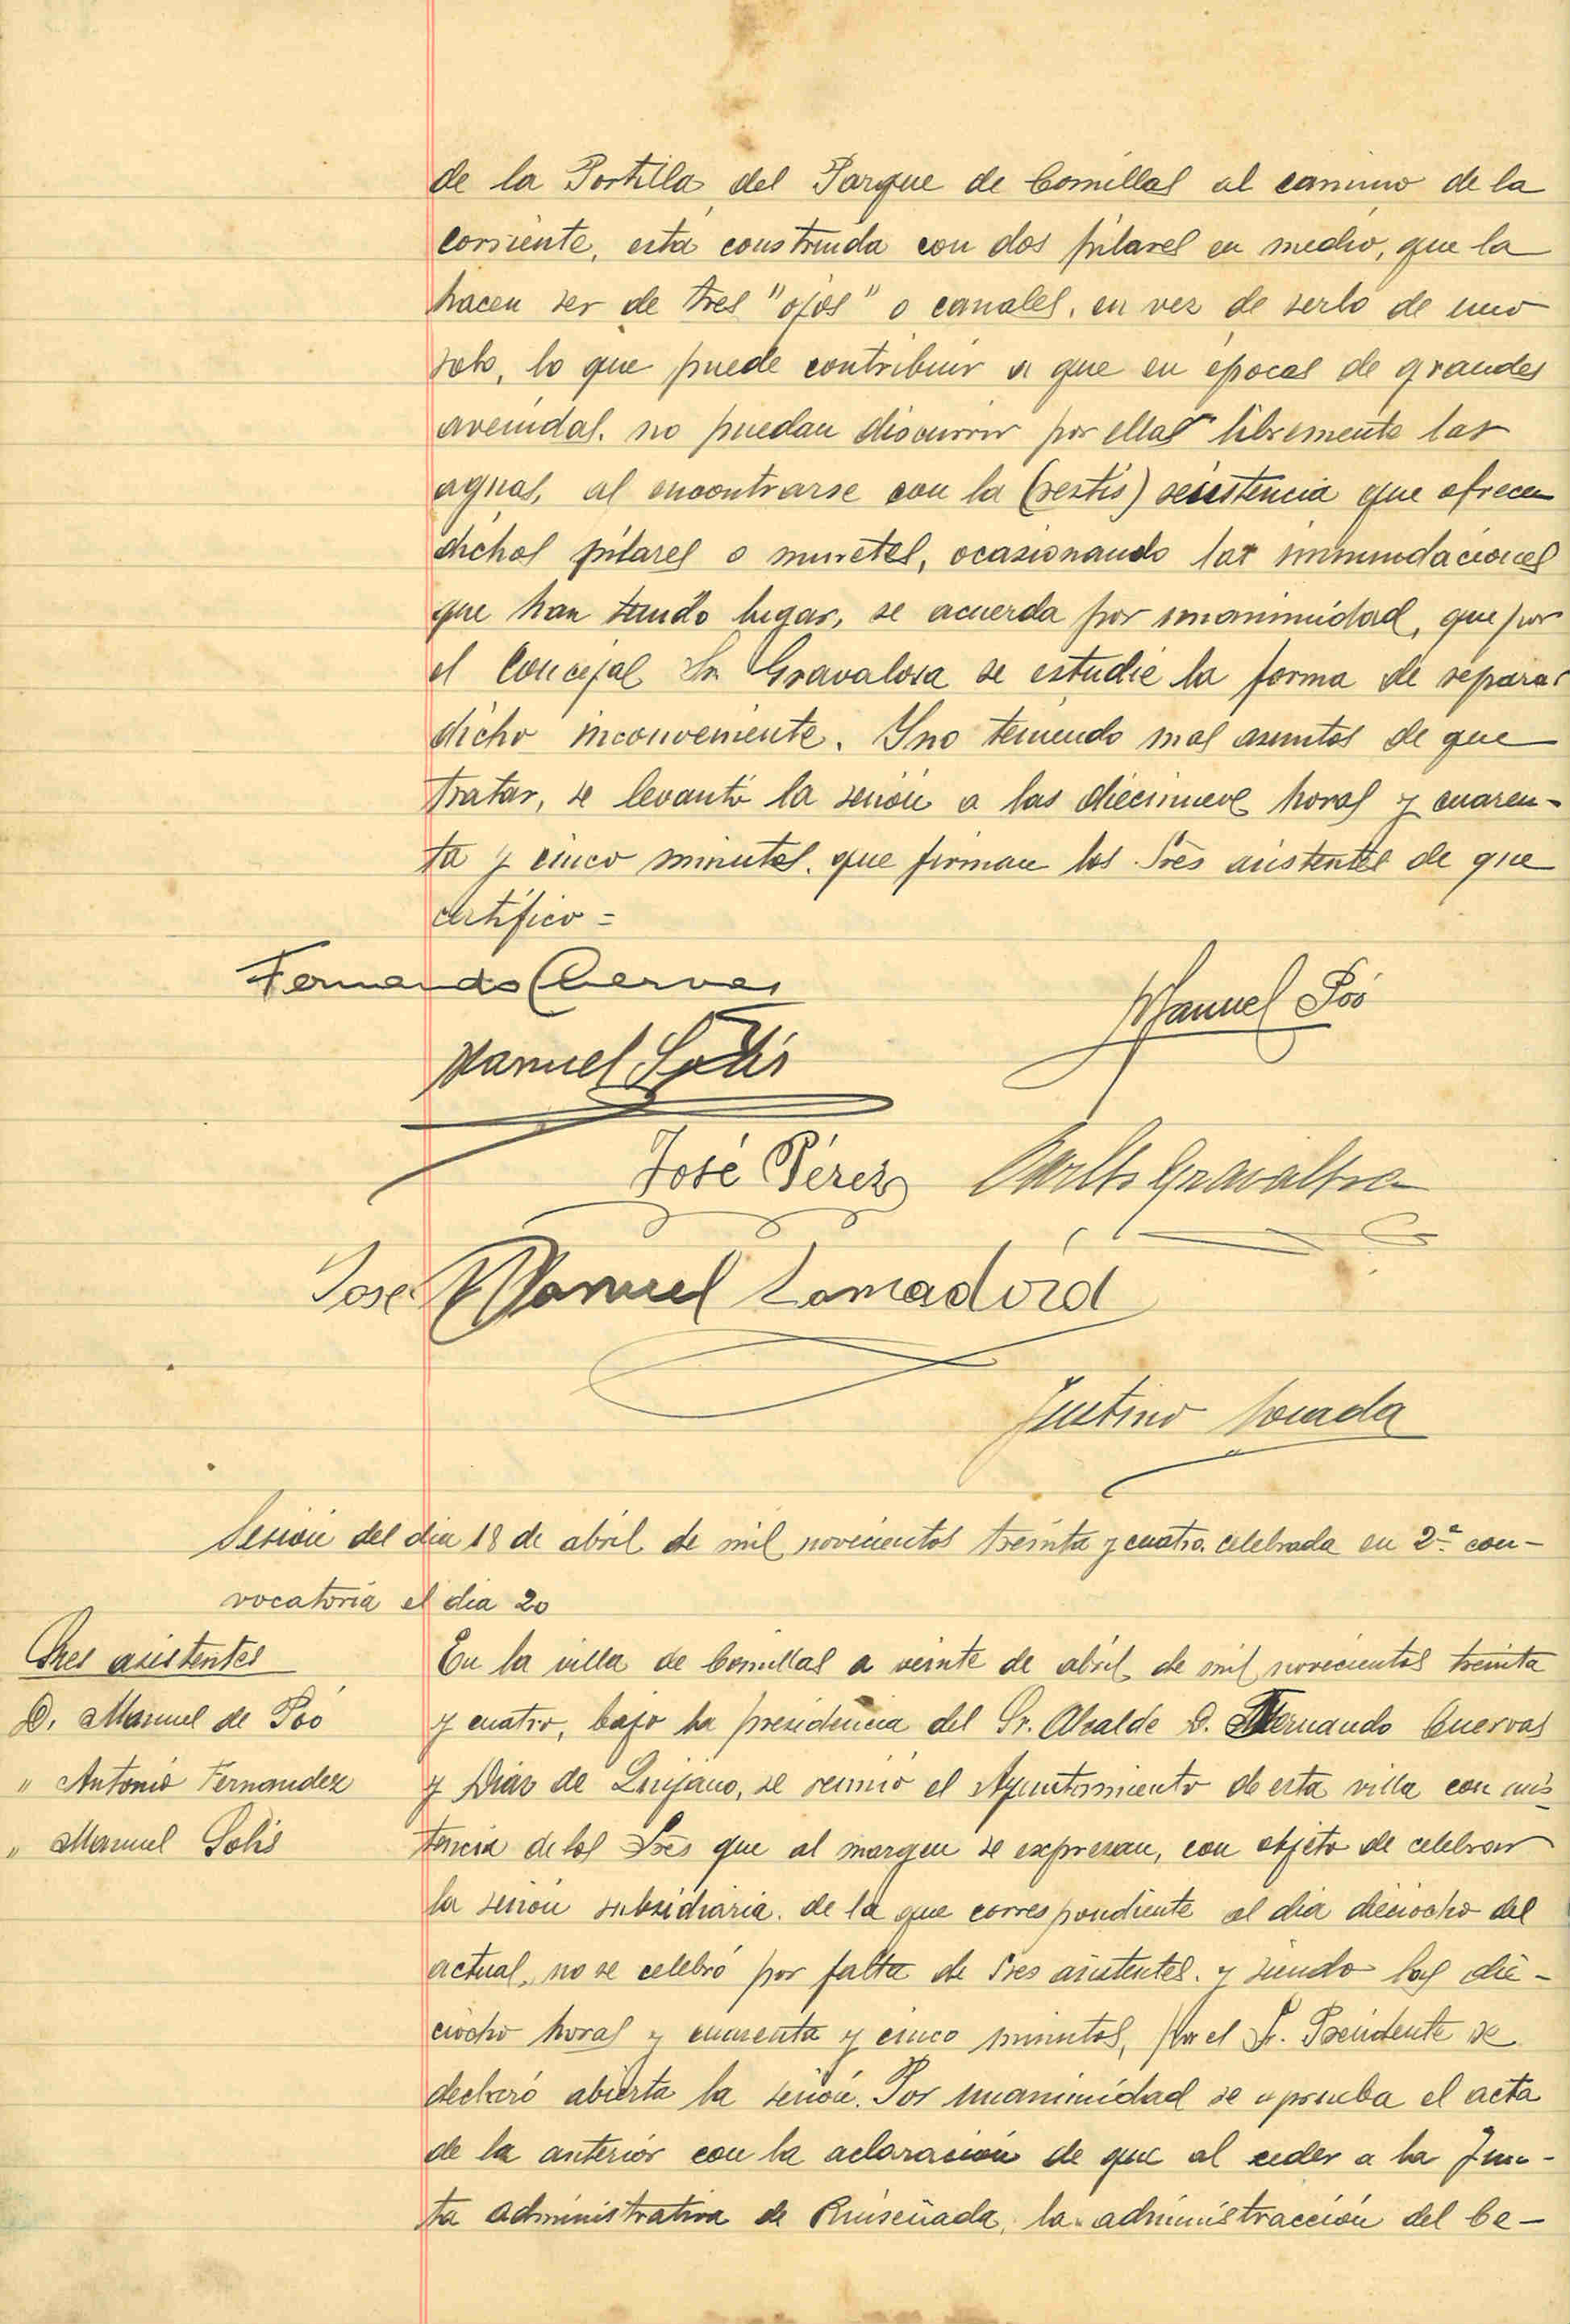 de la Portilla del Parque de Comillas al camino de la
corriente, está construida con dos pilares en medio, que la
hacen ser de tres "ojos" o canales, en vez de serlo de uno
solo, lo que puede contribuir a que en épocas de grandes
avenidas, no puedan discurrir por ellas libremente las
aguas, al encontrarse con la (restis) resistencia que ofrecen
dichos pilares o muretes, ocasionando las innundaciones
que han tenido lugar, se acuerda por unanimidad, que por
el Concejal Sr. Gravalosa se estudie la forma de reparar
dicho inconveniente. Y no teniendo mas asuntos de que
tratar, se levantó la sesión a las diecinueve horas y cuaren-
ta y cinco minutos, que firman los Sres asistentes de que
certifico =
Fernando Cuervas
Manuel Poó
Manuel Solís
José Pérez
Carlos Gravalosa
Jose Manuel Lamadrid
Justino
Sesión del dia 18 de abril de mil novecientos treinta y cuatro celebrada en 2ª con-
vocatoria el dia 20
Sres asistentes
D. Manuel de Poó
" Antonio Fernandez
" Manuel Solís
En la villa de Comillas a veinte de abril de mil novecientos treinta
y cuatro, bajo la presidencia del Sr. Alcalde D. Fernando Cuervas
y Díaz de Quijano, se reunió el Ayuntamiento de esta villa con asis-
tencia de los Sres que al margen se expresan, con objeto de celebrar
la sesión subsidiaria de la que correspondiente al dia dieciocho del
actual, no se celebró por falta de Sres asistentes. y siendo las die-
ciocho horas y cuarenta y cinco minutos, por el Sr. Presidente se
declaró abierta la sesión. Por unanimidad se aprueba el acta
de la anterior con la aclaración de que al ceder a la Jun-
ta administrativa de Ruiseñada, la administracción del Ce-